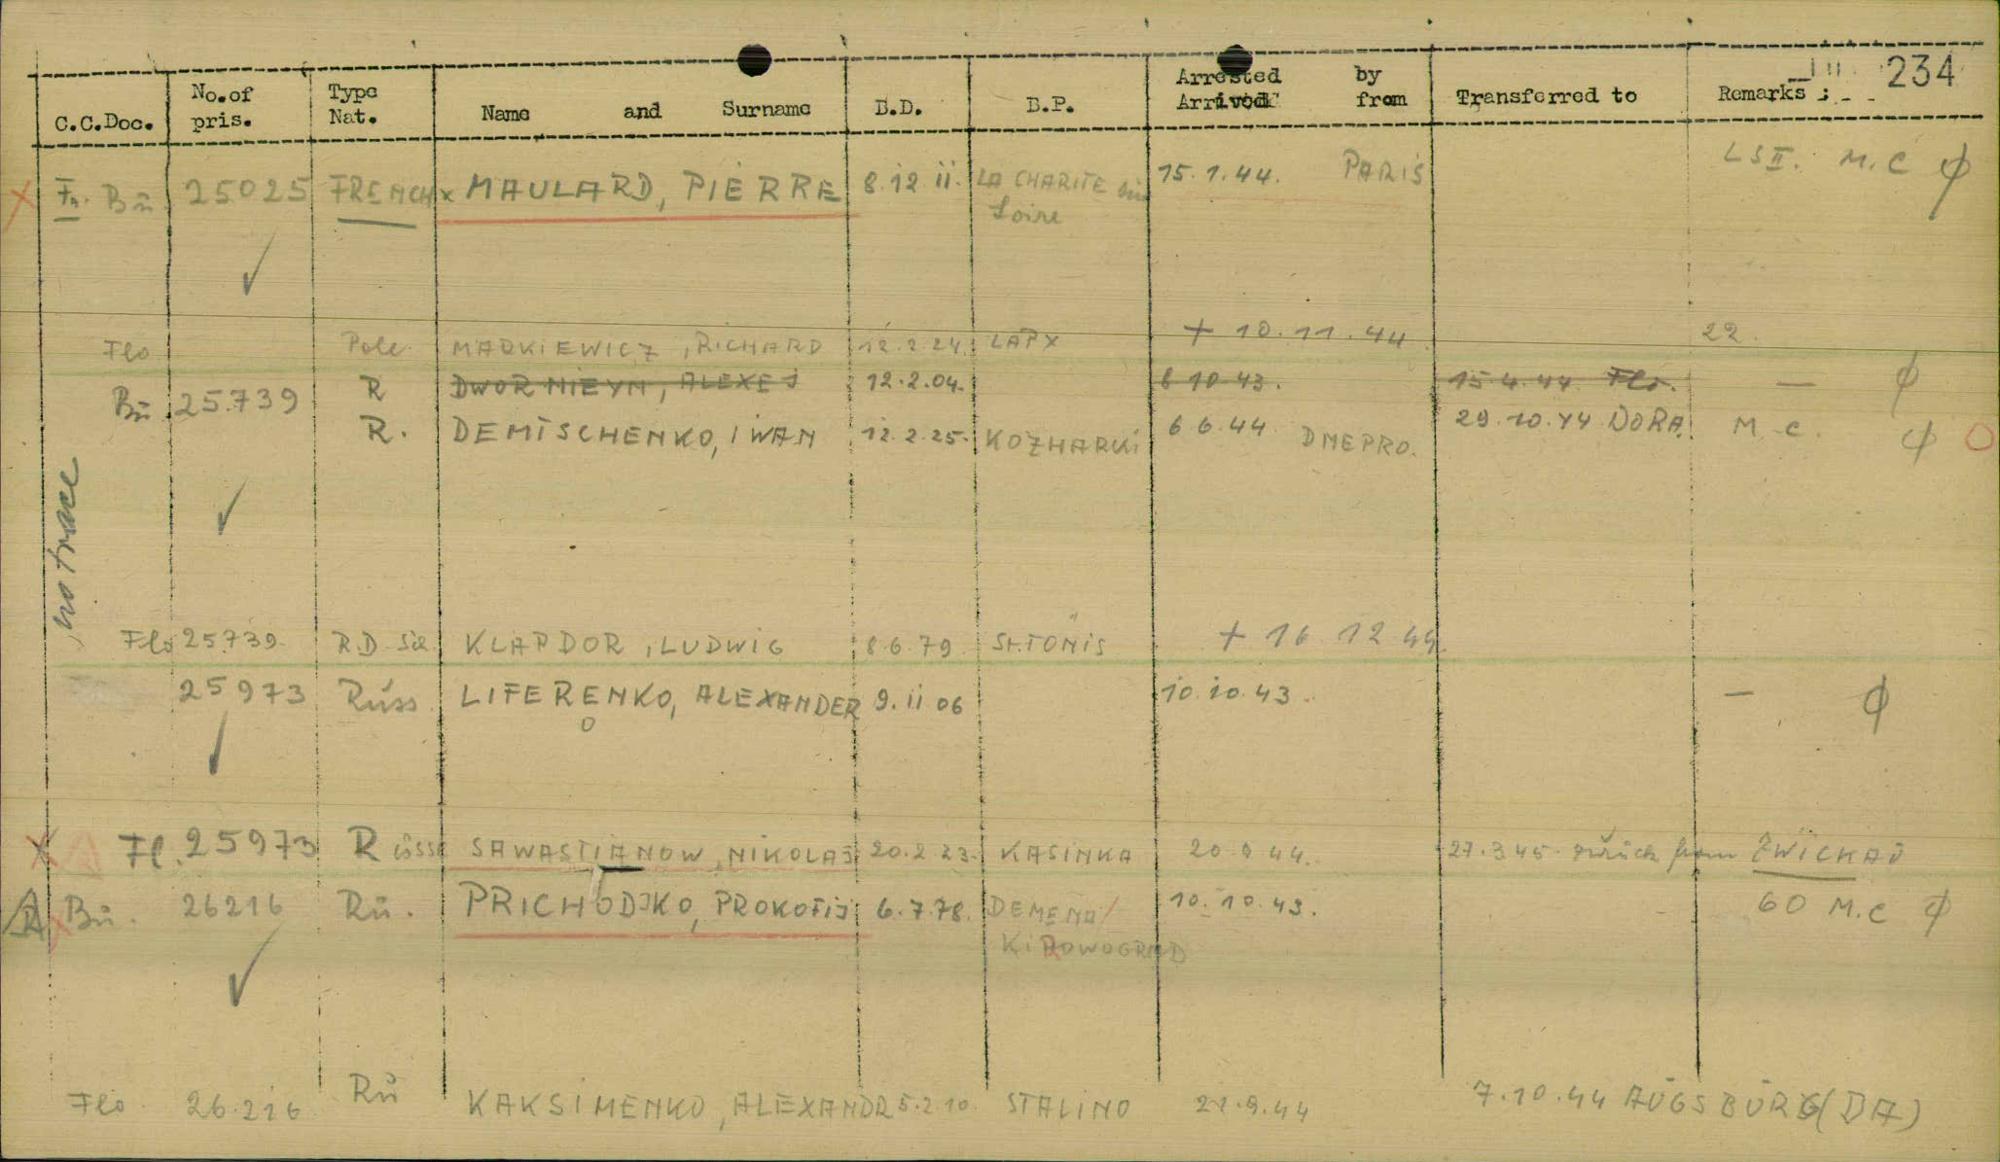 234
C.C.Doc. No.of pris. Type Nat. Name and Surname B.D. B.P. Arrested Arrived by from Transferred to Remarks :
LS II. M.C ϕ
X Fr. Bü 25025 FRENCH x MAULARD, PIERRE 8.12 11. LA CHARITE sur Loire 15.1.44. PARIS
✓
Flo Pole MARKIEWICZ, RICHARD 12.2.24. LAPX + 10.11.44 22.
R DWORNIEYN, ALEXEJ 12.2.04. 8 10 43. 15 4.44 Flo. — ϕ
Bü 25.739
R. DEMISCHENKO, IWAN 12.2.25. KOZHARKI 6 6.44 DNEPRO. 29.10.44 DORA. M.C. ϕ O
no trace
✓
Flo 25739. R.D. KLAPDOR, LUDWIG 8.6.79 St.TÖNIS + 16 12 44.
25973 Russ. LIFERENKO, ALEXANDER 9.11 06 10.10.43. — ϕ
O
✓
X Fl. 25973 Rüsse SAWASTIANOW, NIKOLAJ 20.2 23. KASINKA 20 9 44. 27.3 45. zurück from ZWICKAU
Bü. 26216 Rü. PRICHODJKO, PROKOFIJ 6.7.78. DEMENO/ KIROWOGRAD 10.10.43. 60 M.C ϕ
✓
Flo 26.216 Rü KAKSIMENKO, ALEXANDR 5.2.10. STALINO 21.9.44 7.10.44 AUGSBURG (DA)